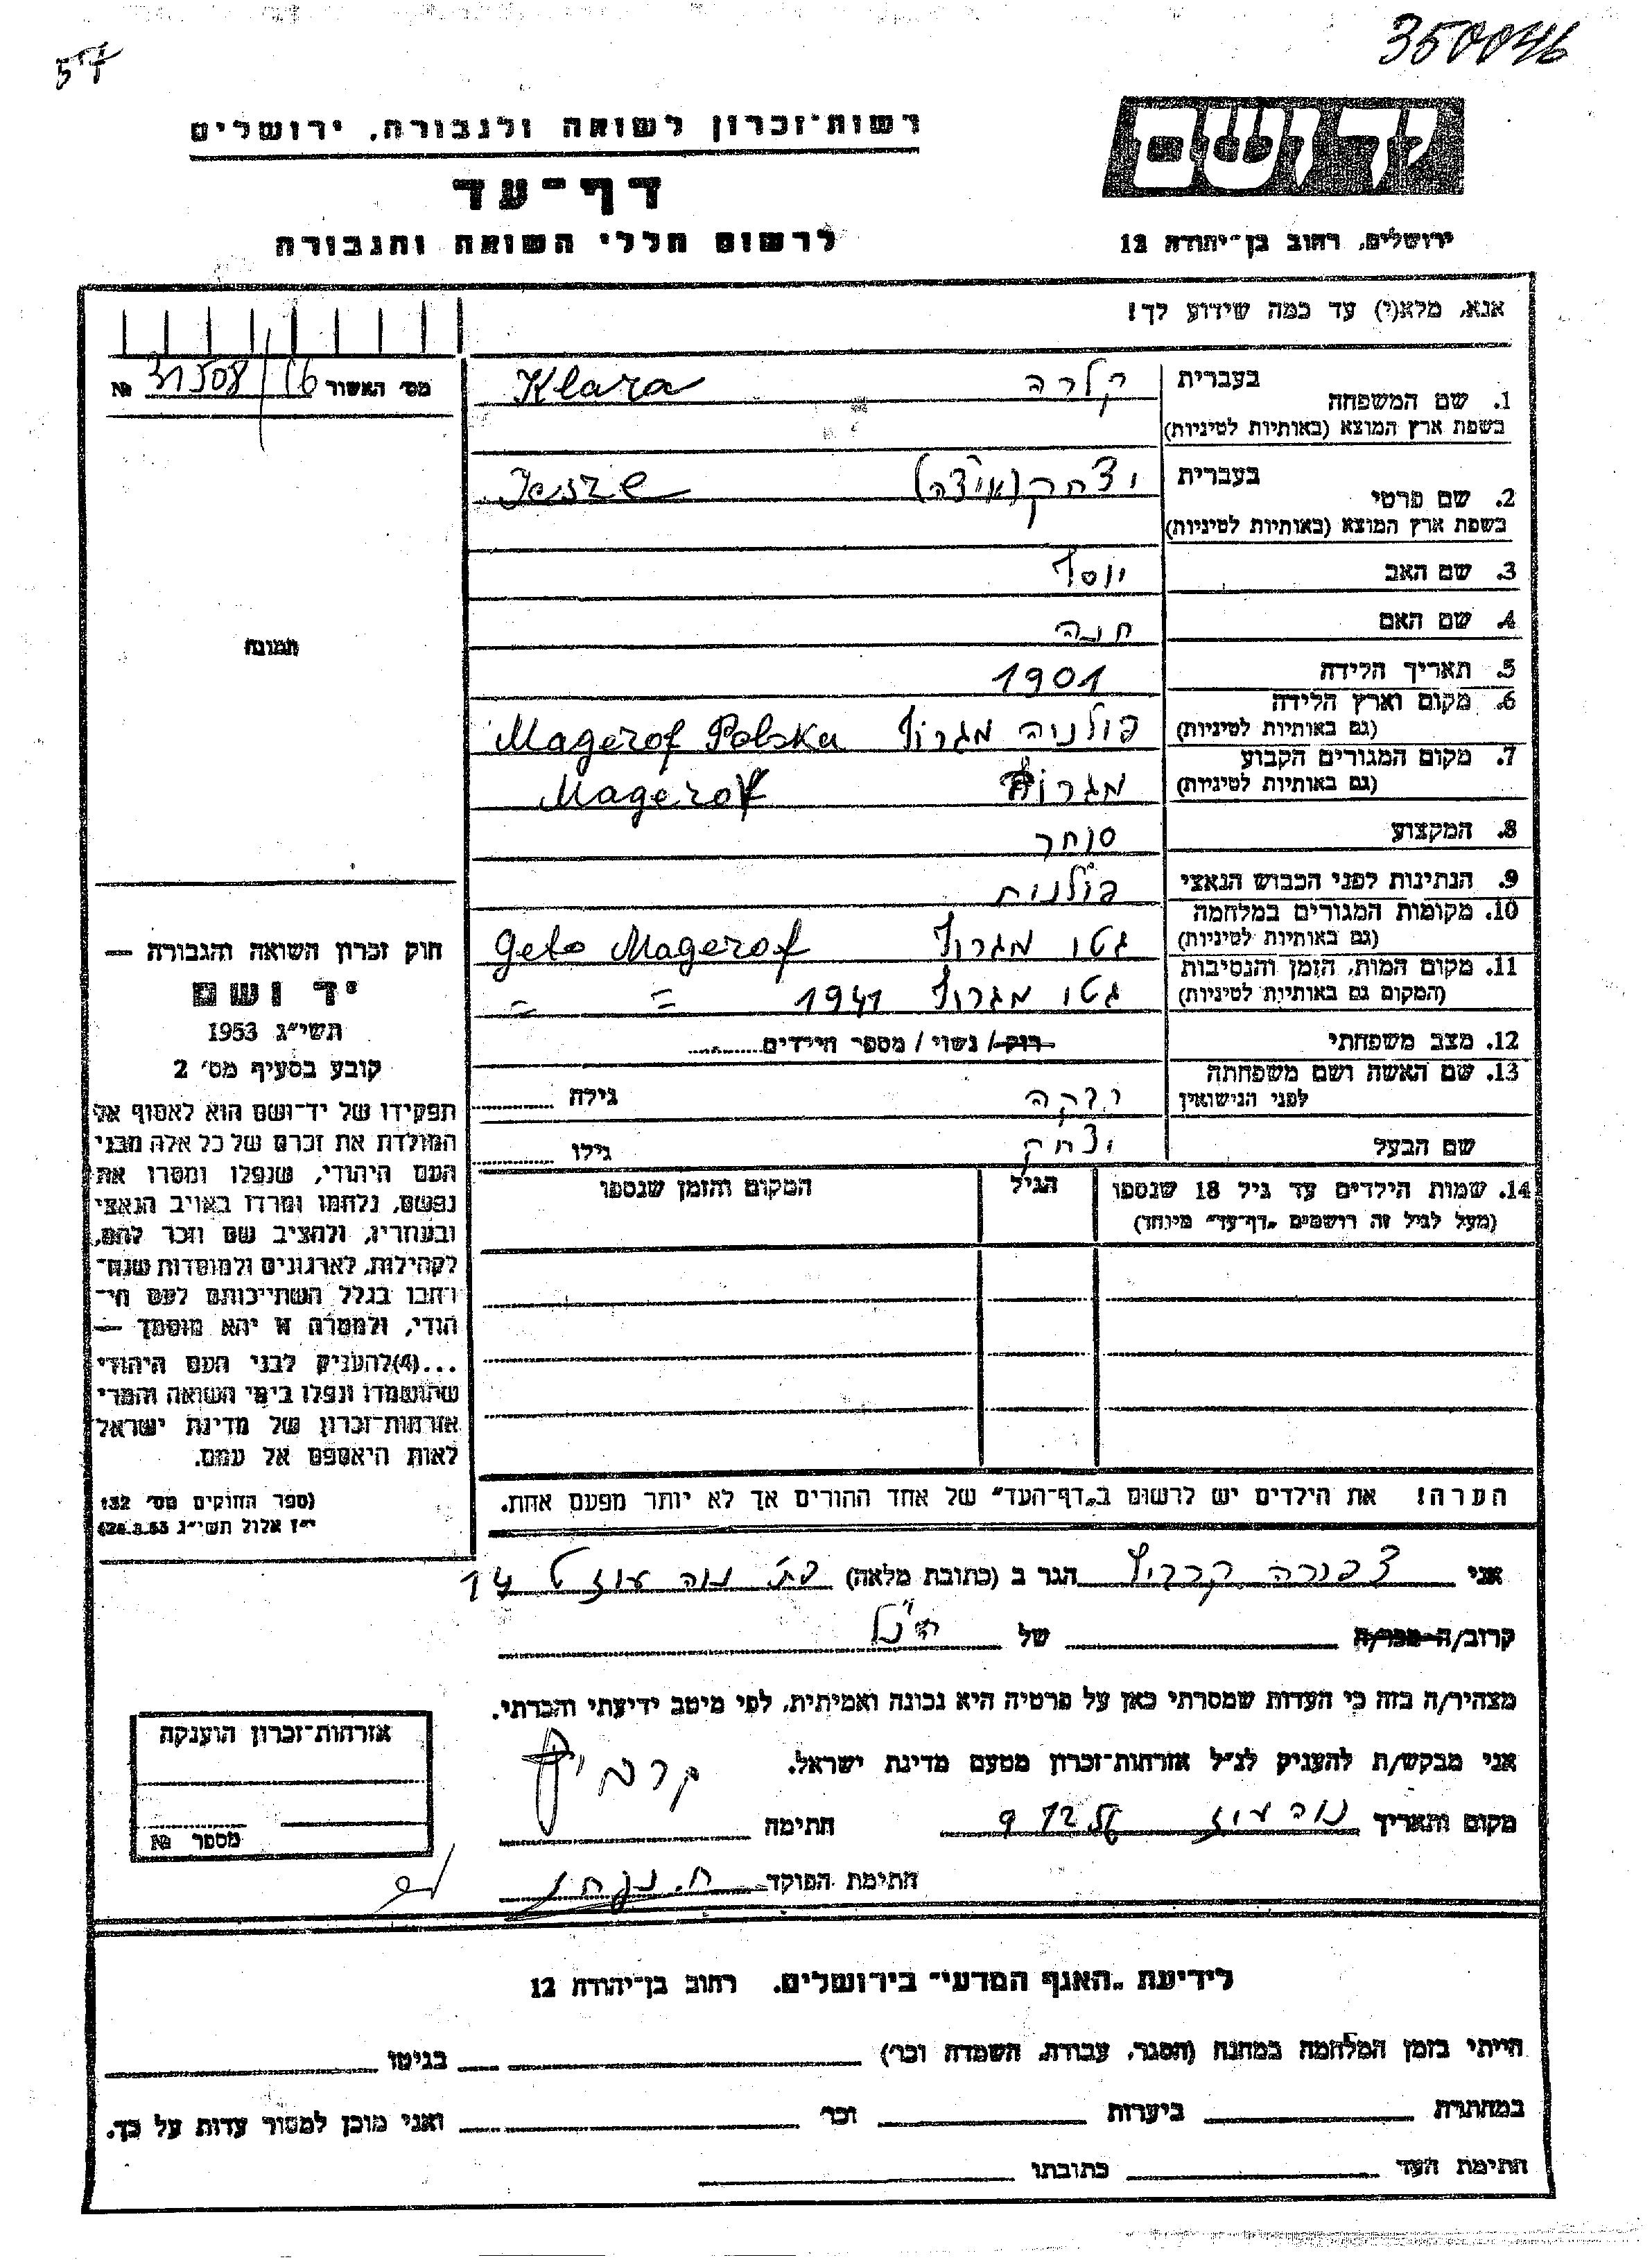 57
350046
רשות־זכרון לשואה ולגבורה, ירושלים
דף־עד
לרשום חללי השואה והגבורה
יד ושם
ירושלים, רחוב בן־יהודה 12
אנא, מלא(י) עד כמה שידוע לך!
מס׳ האשור 31508/16 №
תמונה
בעברית
1. שם המשפחה
בשפת ארץ המוצא (באותיות לטיניות)
קלרה Klara
בעברית
2. שם פרטי
בשפת ארץ המוצא (באותיות לטיניות)
יצחק (איצה)
3. שם האב יוסף
4. שם האם חנה
5. תאריך הלידה 1901
6. מקום וארץ הלידה
(גם באותיות לטיניות)
פולניה מגרוף Magerof Polska
7. מקום המגורים הקבוע
(גם באותיות לטיניות)
מגרוף Magerof
8. המקצוע סוחר
9. הנתינות לפני הכבוש הנאצי פולנית
10. מקומות המגורים במלחמה
(גם באותיות לטיניות)
גטו מגרוף Geto Magerof
11. מקום המות, הזמן והנסיבות
(המקום גם באותיות לטיניות)
גטו מגרוף 1941 = =
12. מצב משפחתי רווק/ נשוי / מספר הילדים
13. שם האשה ושם משפחתה
לפני הנישואין
גילה
שם הבעל יצחק גילו
14. שמות הילדים עד גיל 18 שנספו
(מעל לגיל זה רושמים „דף־עד״ מיוחד)
הגיל
המקום והזמן שנספו
הערה! את הילדים יש לרשום ב„דף־העד״ של אחד ההורים אך לא יותר מפעם אחת.
חוק זכרון השואה והגבורה —
יד ושם
תשי״ג 1953
קובע בסעיף מס׳ 2
תפקידו של יד־ושם הוא לאסוף אל
המולדת את זכרם של כל אלה מבני
העם היהודי, שנפלו ומסרו את
נפשם, נלחמו ומרדו באויב הנאצי
ובעוזריו, ולהציב שם וזכר להם,
לקהילות, לארגונים ולמוסדות שנח־
רבו בגלל השתייכותם לעם הי־
הודי, ולמטרה זו יהא מוסמך —
...(4)להעניק לבני העם היהודי
שהושמדו ונפלו בימי השואה והמרי
אזרחות־זכרון של מדינת ישראל
לאות היאספם אל עמם.
(ספר החוקים מס׳ 132
י״ז אלול תשי״ג 28.8.53)
אני צפורה קרביץ הגר ב (כתובת מלאה) נוה עוז 14
קרוב/ה מכר/ה של הנ״ל
מצהיר/ה בזה כי העדות שמסרתי כאן על פרטיה היא נכונה ואמיתית, לפי מיטב ידיעתי והכרתי.
אני מבקש/ת להעניק לנ״ל אזרחות־זכרון מטעם מדינת ישראל.
מקום ותאריך נוה עוז חתימה קרביץ
חתימת הפוקד
אזרחות־זכרון הוענקה
מספר №
לידיעת „האגף המדעי״ בירושלים, רחוב בן־יהודה 12
הייתי בזמן המלחמה במחנה (הסגר, עבודה, השמדה וכר׳) בגיטו
במחתרת ביערות וכר׳ ואני מוכן למסור עדות על כך.
חתימת העד כתובתו